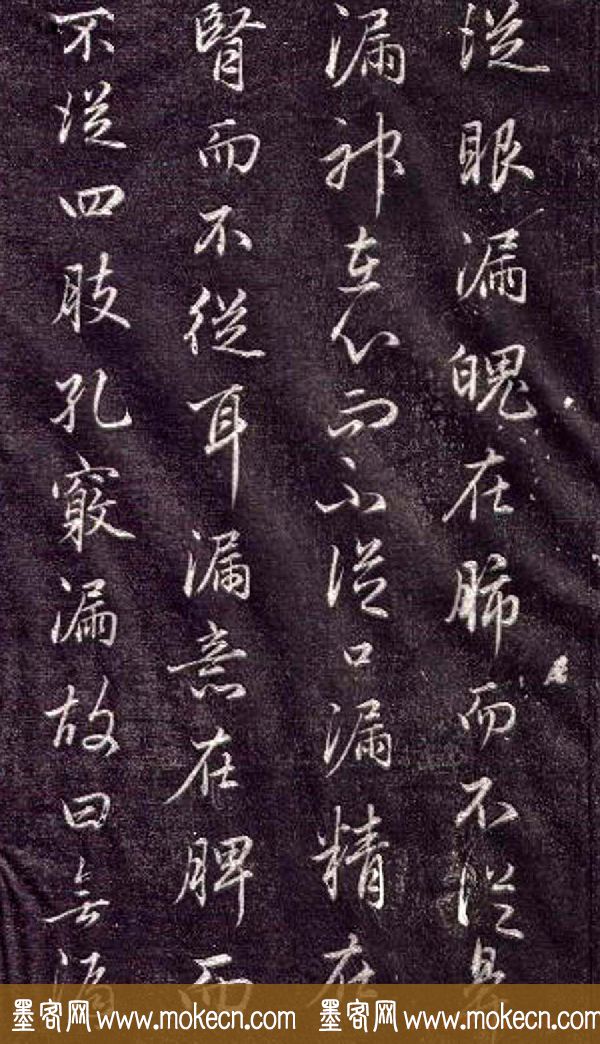 從眼漏魄在肺而不從鼻
漏神在心而不從口漏精在
腎而不從耳漏意在脾而
不從四肢孔竅漏故曰無漏
墨客网 www.mokecn.com 墨客网 www.mokecn.com